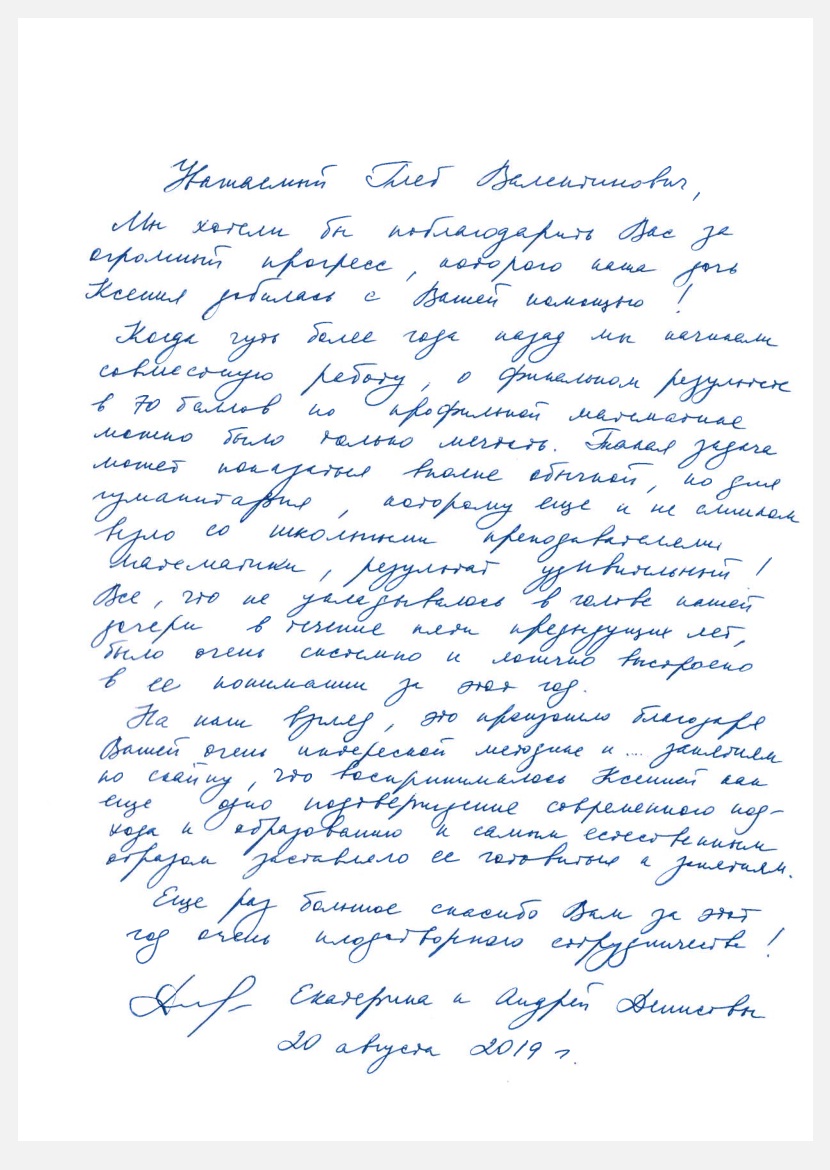 Уважаемый Глеб Валентинович,
Мы хотели бы поблагодарить Вас за
огромный прогресс, которого наша дочь
Ксения добилась с Вашей помощью!
Когда чуть более года назад мы начинали
совместную работу, о финальном результате
в 70 баллов по профильной математике
можно было только мечтать. Такая задача
может показаться вполне обычной, но для
гуманитария, которому еще и не слишком
везло со школьными преподавателями
математики, результат удивительный!
Все, что не укладывалось в голове нашей
дочери в течение пяти предыдущих лет,
было очень системно и логично выстроено
в ее понимании за этот год.
На наш взгляд, это произошло благодаря
Вашей очень интересной методике и .... занятиям
по скайпу, что воспринималось Ксенией как
еще одно подтверждение современного под-
хода к образованию и самым естественным
образом заставляло ее готовиться к занятиям.
Еще раз большое спасибо Вам за этот
год очень плодотворного сотрудничества!
Екатерина и Андрей Денисовы
20 августа 2019 г.